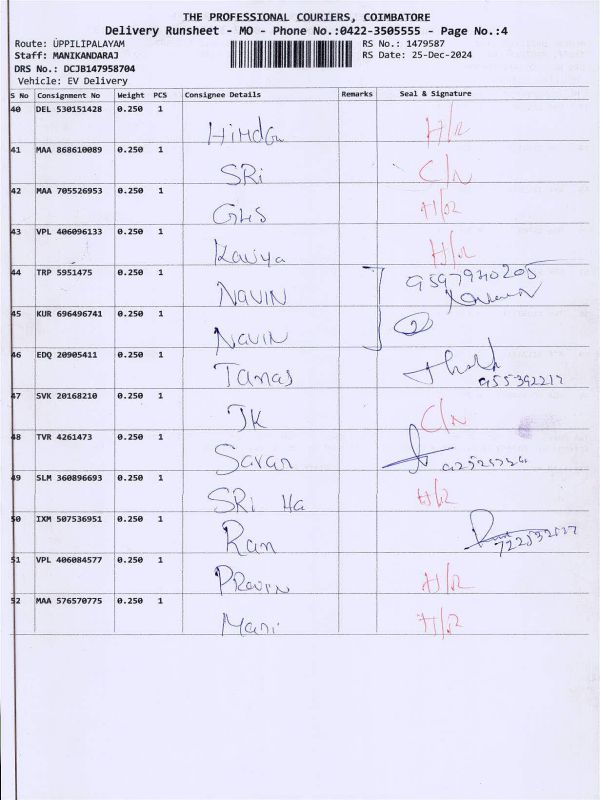 THE PROFESSIONAL COURIERS, COIMBATORE
Delivery Runsheet - MO - Phone No.:0422-3505555 - Page No.:4
Route: UPPILIPALAYAM RS No.: 1479587
Staff: MANIKANDARAJ RS Date: 25-Dec-2024
DRS No.: DCJB147958704
Vehicle: EV Delivery
S No Consignment No Weight PCS Consignee Details Remarks Seal & Signature
40 DEL 530151428 0.250 1
H/R
41 MAA 868610089 0.250 1
SRi C/N
42 MAA 705526953 0.250 1
H/R
43 VPL 406096133 0.250 1
Kaviya H/R
44 TRP 5951475 0.250 1
9597940205
NAVIN
45 KUR 696496741 0.250 1
2
NAVIN
46 EDQ 20905411 0.250 1
Tamas
955392217
47 SVK 20168210 0.250 1
JK C/N
48 TVR 4261473 0.250 1
Saran
49 SLM 360896693 0.250 1
SRi Ha H/R
50 IXM 507536951 0.250 1
Ram
51 VPL 406084577 0.250 1
PRavin H/R
52 MAA 576570775 0.250 1
Mani H/R